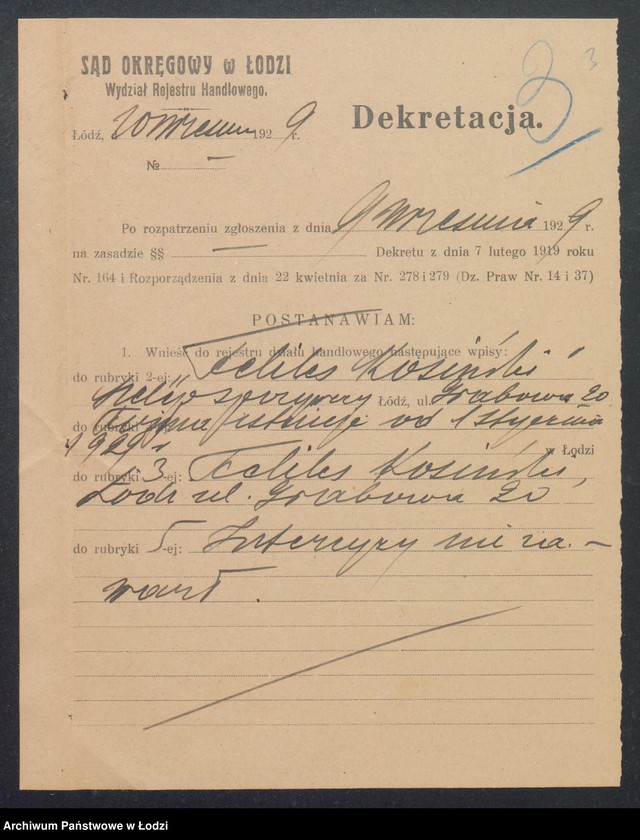 SĄD OKRĘGOWY w ŁODZI
Wydział Rejestru Handlowego.
3
3
Dekretacja.
Łódź, 20 wrzesnia 1929 r.
№ —
Po rozpatrzeniu zgłoszenia z dnia 9 wrzesnia 1929 r.
na zasadzie §§ — Dekretu z dnia 7 lutego 1919 roku
Nr. 164 i Rozporządzenia z dnia 22 kwietnia za Nr. 278 i 279 (Dz. Praw Nr. 14 i 37)
POSTANAWIAM:
1. Wnieść do rejestru działu handlowego następujące wpisy:
do rubryki 2-ej: „Feliks Kosiński"
sklep spożywczy Łódź, ul. Grabowa 20
do rubryki Firma istnieje od 1 stycznia
1929 r w Łodzi
do rubryki 3-ej: Feliks Kosiński,
Łódź ul. Grabowa 20
do rubryki 5-ej: Intercyzy nie za-
warł.
Archiwum Państwowe w Łodzi